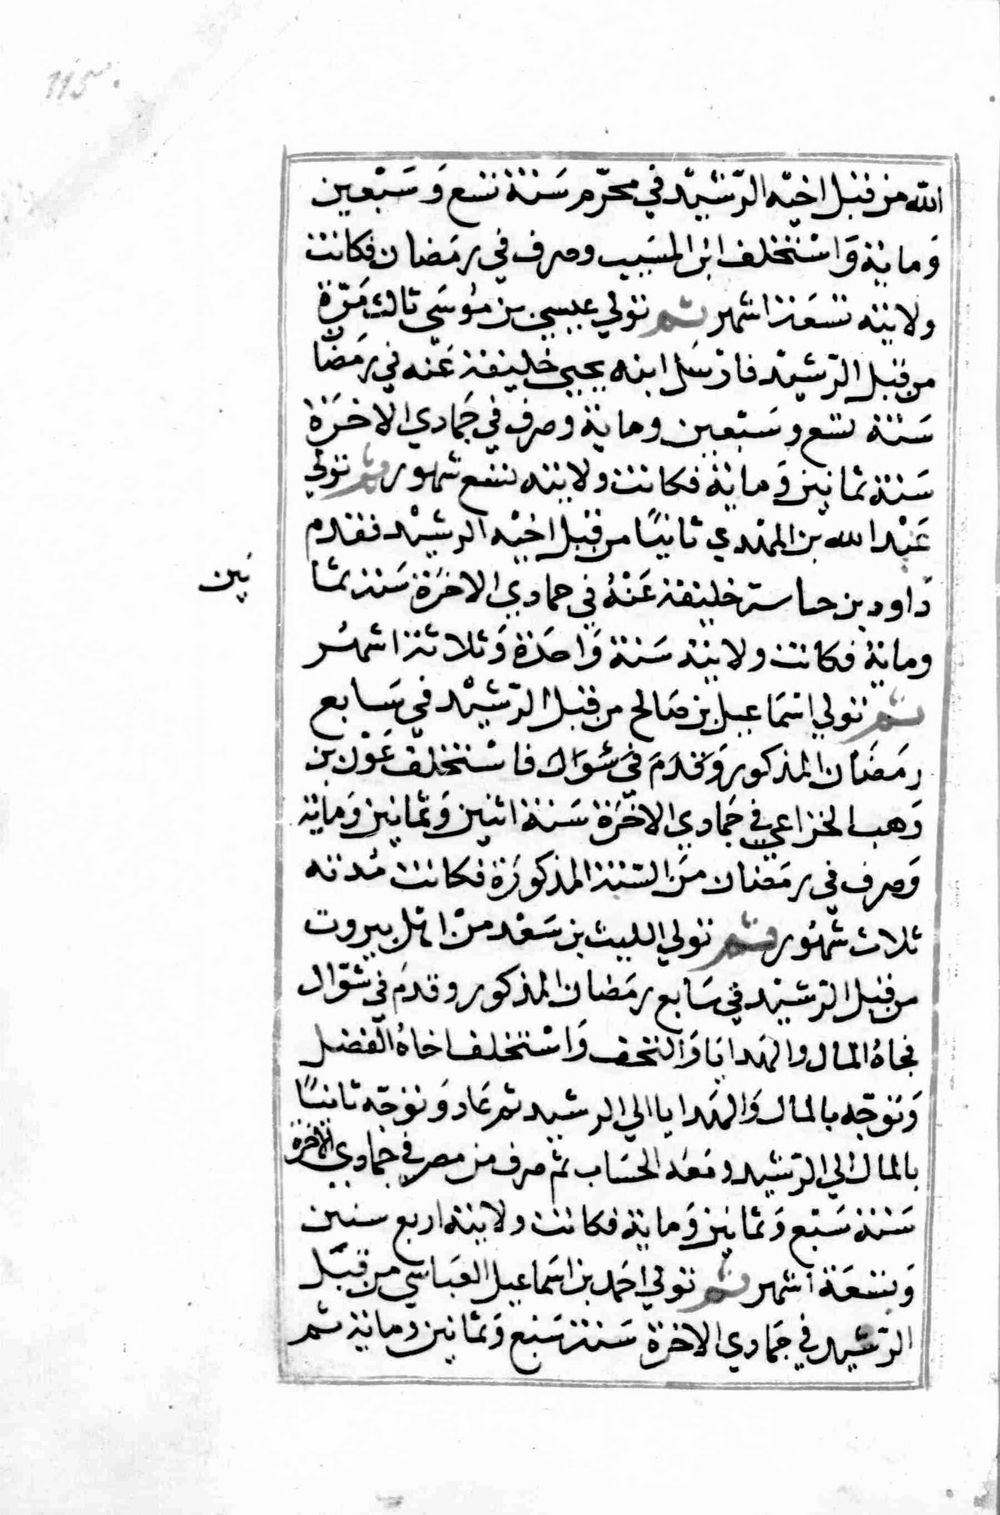 115
الله من قبل اخيه الرّشيد في محرّم سَنة تسع وَسَبْعين
وَماية وَاسْتخلف ابن المسَيب وصرف في رمَضان فكانت
ولايته تسعَة اشهر ثم تولي عيسى بن مُوسَى ثالث مَرّة
من قبل الرّشيد فارْسَل ابنه يحيى خليفة عَنه في رمَضان
سَنة تسع وسَبْعين وماية وصرف في جَمادي الاخرَة
سَنة ثمانين وَماية فكانت ولايته تسع شهور وثم تولي
عَبْد الله بن المهدي ثانيًا من قبل اخيْه الرشيْد فقدم
داود بن حباسة خليفة عَنْهُ في جمادي الاخرَة سَنة ثما
نين
وماية فكانت ولايته سَنة وَاحدَة وَثلاثة اشهُر
ثم تولي اسْمَاعيل بن صَالح من قبل الرّشيْد في سَابع
رمَضَان المذكور وَقدمَ في شوّال فاسْتخلف عَوْن بن
وَهب الخزاعي في جَمادي الاخرَة سَنة اثنين وَثمانين وَماية
وَصرف في رمَضان منَ السّنة المذكورَة فكانت مُدته
ثلاث شهُور وثم تولي الليث بن سَعْد منْ اهْل بيروت
من قبل الرّشيْد في سَابع رمَضان المذكور وقدمَ في شوّال
فجاهُ المال والهدايا وَالتحف وَاسْتخلف اخاهُ الفضل
وَتوجّه بالمال وَالهدَايا الي الرشيد ثم عَاد وَتوَجّه ثانيًا
بالمال الي الرّشيد ومعَه الحسَاب ثم صرف من مصر في جمادي الاخرة
سَنة سَبْع وَثمانين وَماية فكانت ولايته اربع سنين
وَتسعَة أشهر ثم تولي احمَد بن اسَماعيل العَباسي من قبَل
الرّشيد في جَمادي الاخرَة سَنة سَبْع وَثمانين وماية ثم